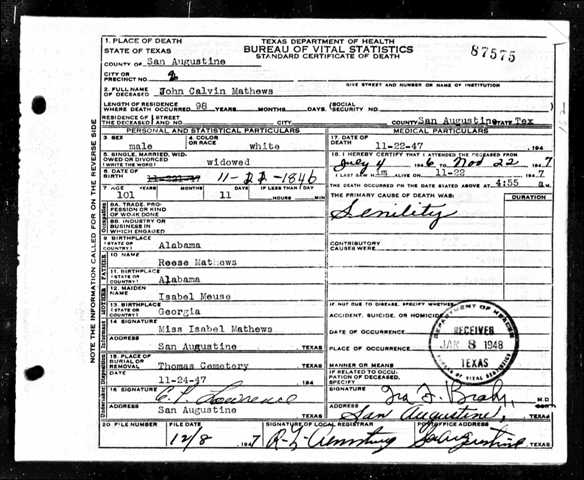 TEXAS DEPARTMENT OF HEALTH
BUREAU OF VITAL STATISTICS
STANDARD CERTIFICATE OF DEATH
87575
1. PLACE OF DEATH
STATE OF TEXAS
COUNTY OF San Augustine
CITY OR
PRECINCT NO. 2
GIVE STREET AND NUMBER OR NAME OF INSTITUTION
2. FULL NAME
OF DECEASED John Calvin Mathews
LENGTH OF RESIDENCE
WHERE DEATH OCCURRED 98 YEARS MONTHS DAYS (SOCIAL
SECURITY NO.
RESIDENCE OF STREET
THE DECEASED AND NO. CITY COUNTY San Augustine STATE Tex
PERSONAL AND STATISTICAL PARTICULARS
3. SEX male
4. COLOR
OR RACE white
5. SINGLE, MARRIED, WID-
OWED OR DIVORCED
(WRITE THE WORD) widowed
6. DATE OF
BIRTH 11-22-1846
7. AGE YEARS MONTHS DAYS IF LESS THAN 1 DAY
101 11 HOURS MIN
8A. TRADE, PRO-
FESSION OR KIND
OF WORK DONE
8B. INDUSTRY OR
BUSINESS IN
WHICH ENGAGED
9. BIRTHPLACE
(STATE OR
COUNTRY) Alabama
10. NAME
Reese Mathews
11. BIRTHPLACE
(STATE OR
COUNTRY) Alabama
12. MAIDEN
NAME Isabel Meuse
13. BIRTHPLACE
(STATE OR
COUNTRY) Georgia
14. SIGNATURE
Miss Isabel Mathews
ADDRESS
San Augustine TEXAS
15. PLACE OF
BURIAL OR
REMOVAL Thomas Cemetery TEXAS
DATE
11-24-47
16. SIGNATURE
ADDRESS
San Augustine TEXAS
MEDICAL PARTICULARS
17. DATE OF
DEATH 11-22-47 194
18. I HEREBY CERTIFY THAT I ATTENDED THE DECEASED FROM
July 4 1946 TO Nov 22 1947
I LAST SAW him ALIVE ON 11-22 1947
THE DEATH OCCURRED ON THE DATE STATED ABOVE AT 4:55 a M.
THE PRIMARY CAUSE OF DEATH WAS: DURATION
Senility
CONTRIBUTORY
CAUSES WERE
IF NOT DUE TO DISEASE, SPECIFY WHETHER:
ACCIDENT, SUICIDE, OR HOMICIDE
DATE OF OCCURRENCE
PLACE OF OCCURRENCE
MANNER OR MEANS
IF RELATED TO OCCU-
PATION OF DECEASED,
SPECIFY
SIGNATURE M.D.
ADDRESS San Augustine, TEXAS
RECEIVED
JAN 8 1948
TEXAS
BUREAU OF VITAL STATISTICS
20 FILE NUMBER FILE DATE SIGNATURE OF LOCAL REGISTRAR POSTOFFICE ADDRESS
12/8 1947 San Augustine TEXAS
NOTE THE INFORMATION CALLED FOR ON THE REVERSE SIDE
Occupation
FATHER
MOTHER
Informant